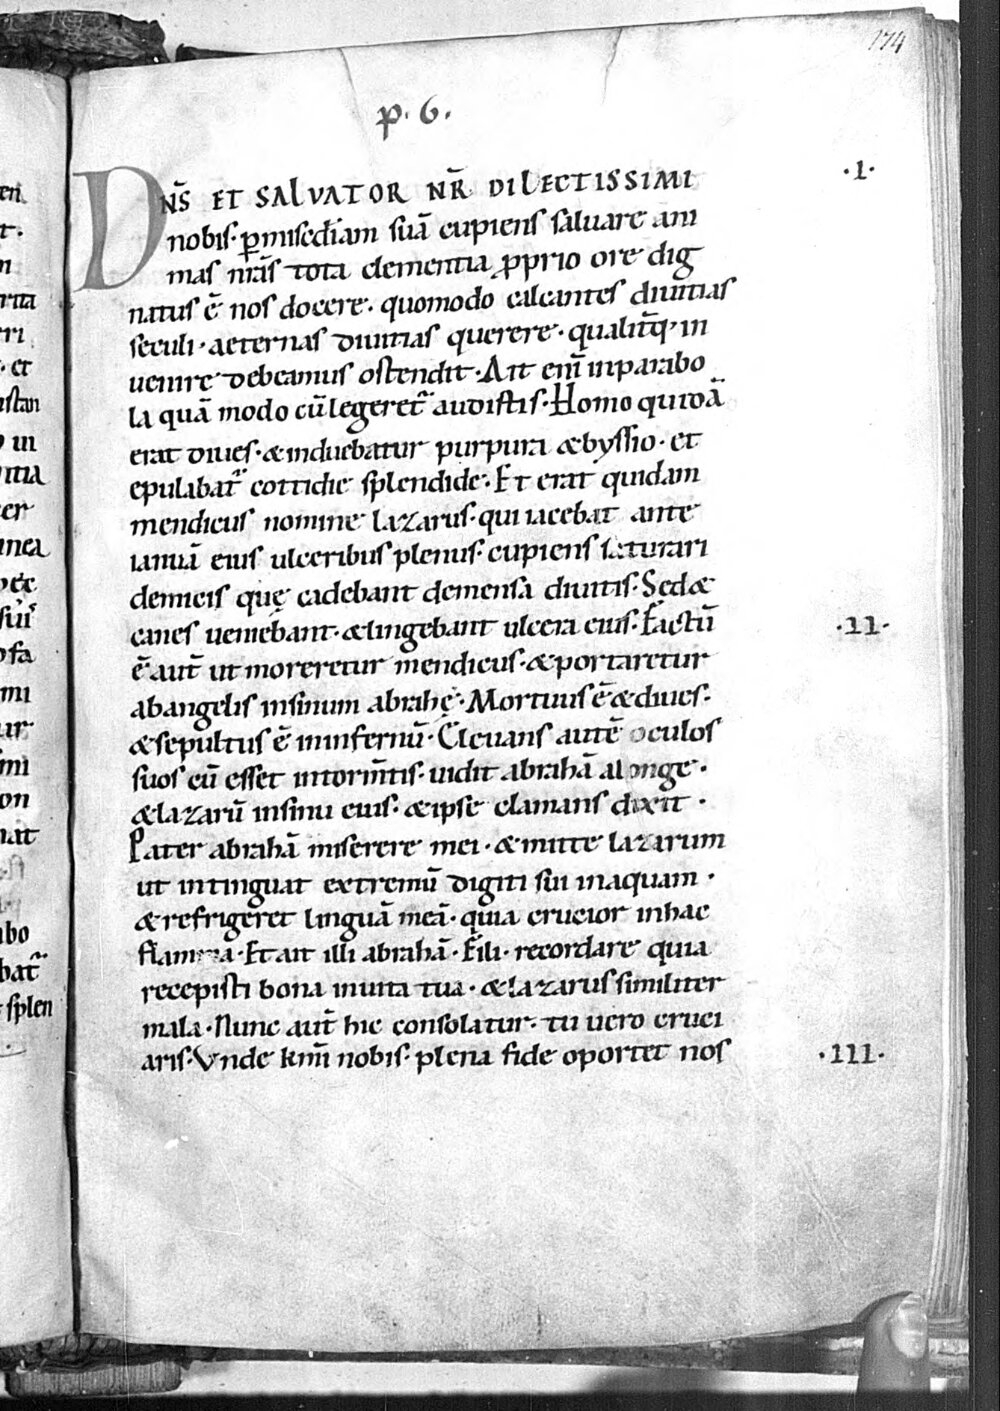 174
p. 6.
DN̄S ET SALVATOR NR̄ DILECTISSIMI ·I·
nobis· p̲misc̄diam suā cupiens saluare ani
mas nr̄as tota clementia ꝓprio ore dig
natus ē nos docere· quomodo calcantes diuitias
seculi· aeternas diuitias querere· qualit̄q; in
uenire debeamus ostendit· Ait eni͞ inparabo
la quā modo cū legeret̄ audistis· Homo quidā
erat diues· &induebatur purpura &bysso· et
epulabat̄ cottidie splendide· Et erat quidam
mendicus nomine lazarus· qui iacebat ante
ianuā eius ulceribus plenus· cupiens saturari
demicis quę cadebant demensa diuitis· Sed&
canes ueniebant· &lingebant ulcera eius· Factū ·II·
ē aut̄ ut moreretur mendicus· &portaretur
abangelis insinum abrahę· Mortuus ē &diues·
&sepultus ē ininfernū· Eleuans autē oculos
suos cū esset intorm̄tis· uidit abrahā alonge·
&lazarū insinu eius· &ipse clamans dixit·
Pater abrahā miserere mei· &mitte lazarum
ut intinguat extremū digiti sui inaquam·
&refrigeret linguā meā· quia crucior inhac
flamma· Et ait illi abrahā· Fili· recordare quia
recepisti bona inuita tua· &lazarus similiter
mala· Nunc aut̄ hic consolatur· tu uero cruci
aris· Vnde km̄i nobis· plena fide oportet nos ·III·